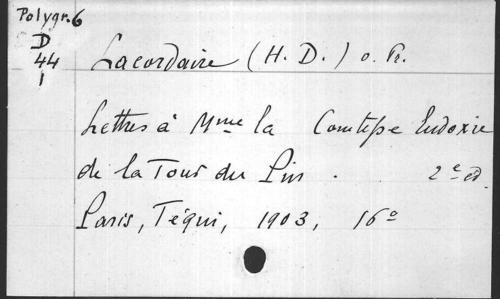 Polygr. 6
D
44
1
Lacordaire (H. D.) o. Pr.
Lettres à Mme la Comtesse Eudoxie
de la Tour du Pin. 2e ed
Paris, Téqui, 1903, 16o